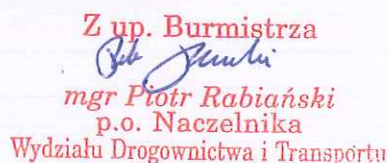 Z up. Burmistrza
mgr Piotr Rabiański
p.o. Naczelnika
Wydziału Drogownictwa i Transportu